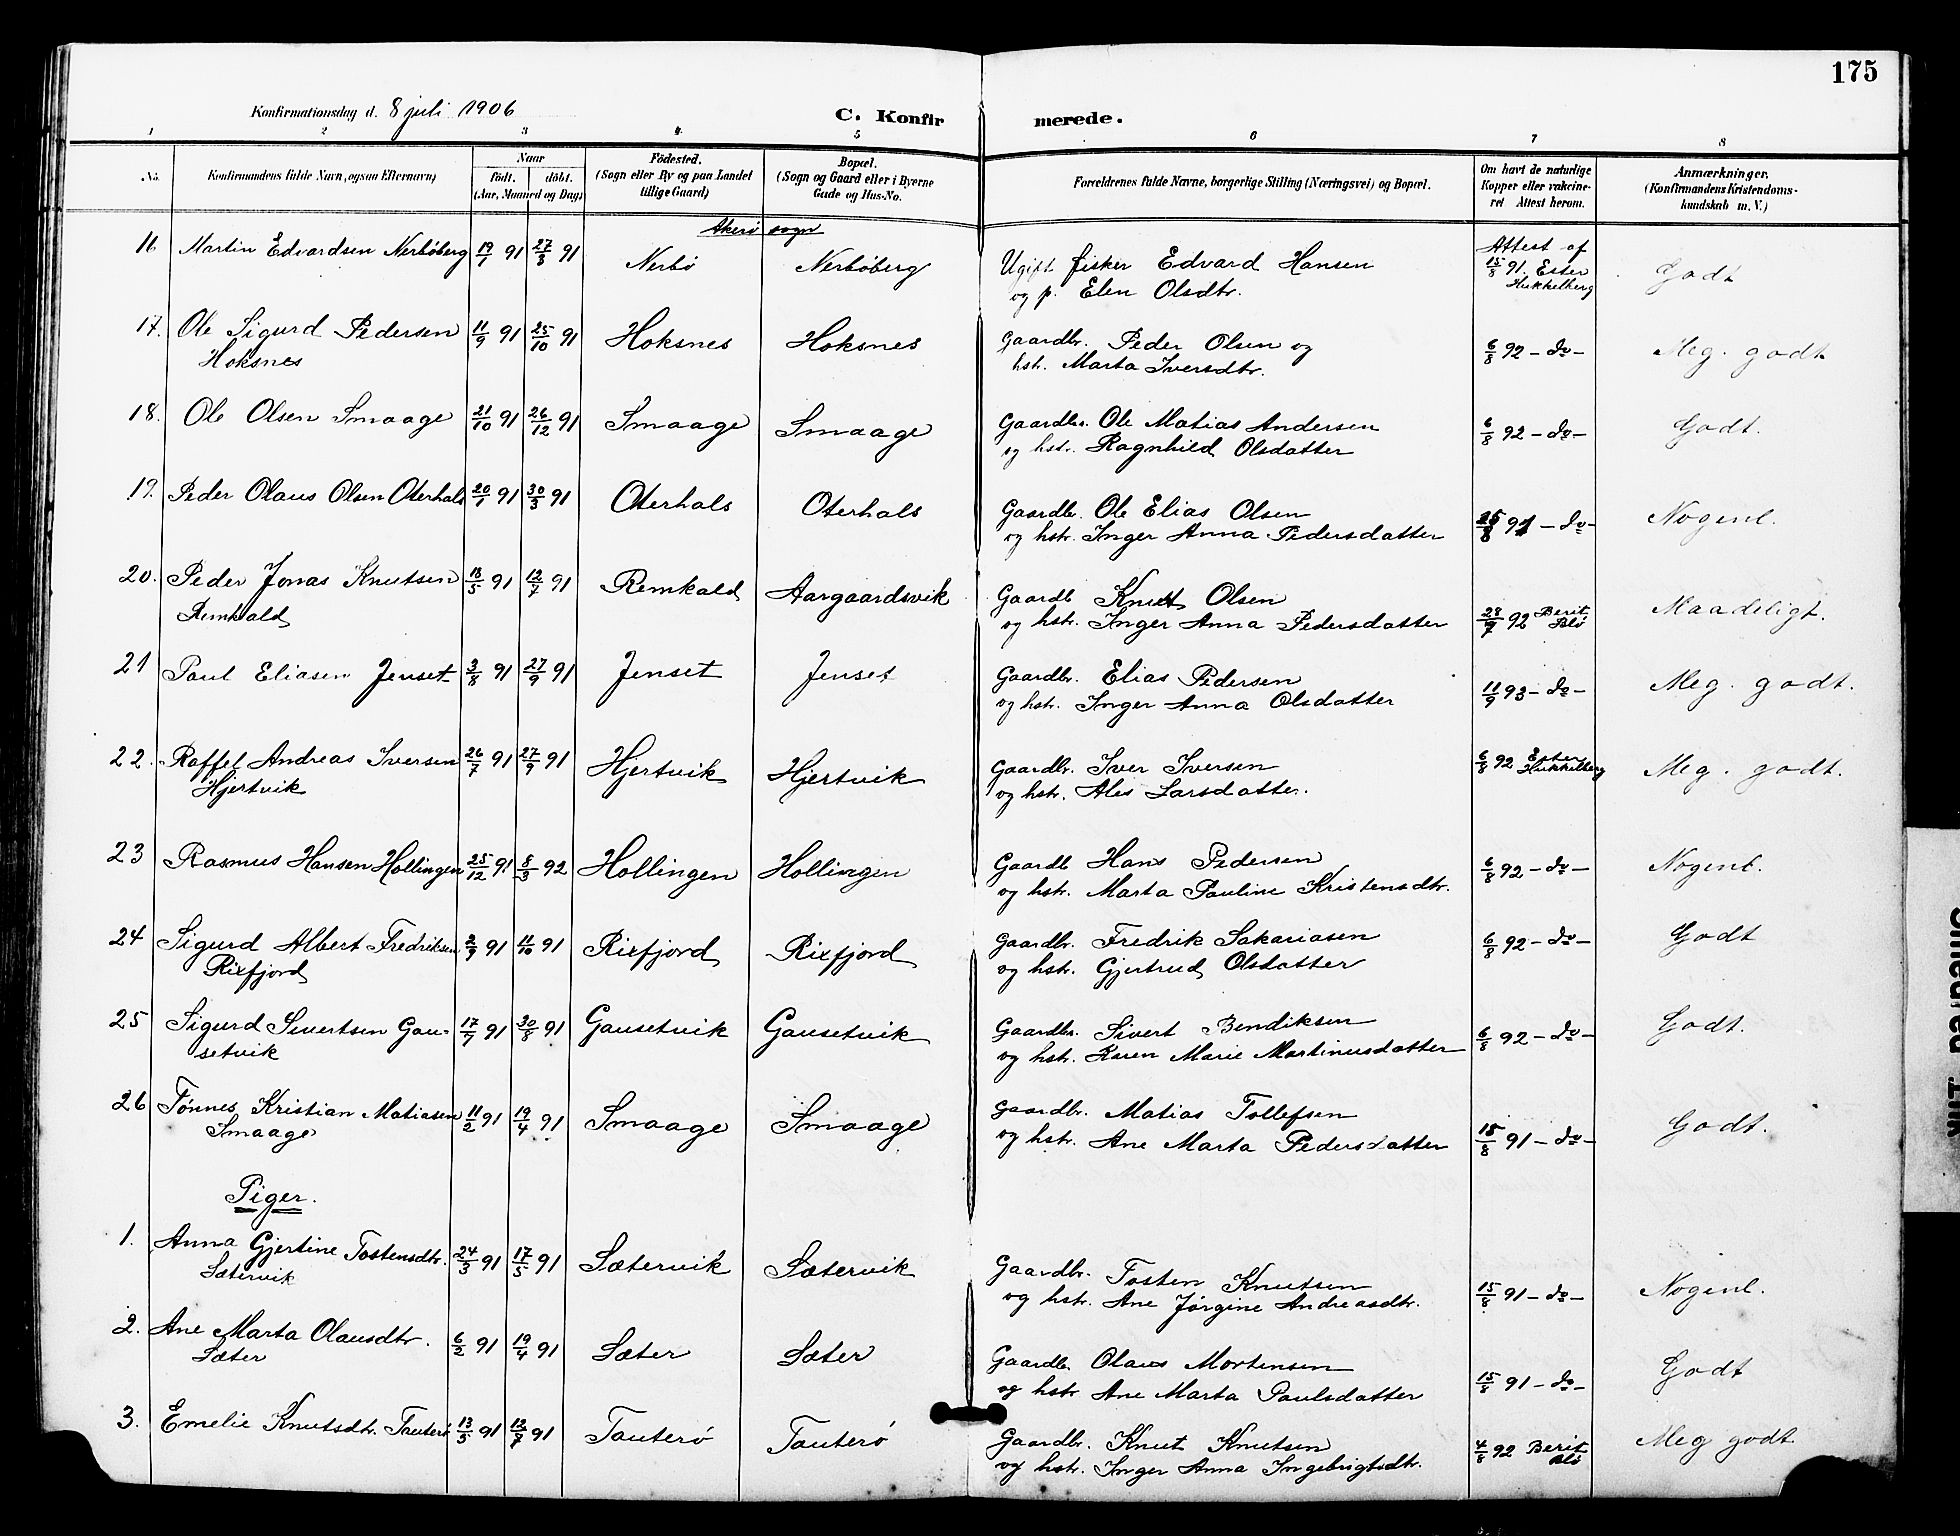 175
Konfirmationsdag d. 8 juli 1906
C. Konfirmerede.
1 2 3 4 5 6 7 8
No. Konfirmandens fulde Navn, ogsaa Efternavn) Naar født. døbt. (Aar, Maaned og Dag) Fødested. (Sogn eller By og paa Landet tillige Gaard) Bopæl. (Sogn og Gaard eller i Byerne Gade og Hus-No. Forældrenes fulde Navne, borgerlige Stilling (Næringsvei) og Bopæl. Om havt de naturlige Kopper eller vakcineret Attest herom. Anmærkninger. (Konfirmandens Kristendomskundskab m. V.)
Akerø sogn
16 Martin Edvardsen Nerbøberg 19/1 91 27/3 91 Nerbø Nerbøberg Ugift fisker Edvard Hansen Attest af 15/8 91. Ester Hukkelberg Godt
og p. Elen Olsdtr.
17. Ole Sigurd Pedersen 11/9 91 25/10 91 Hoksnes Hoksnes Gaardbr. Peder Olsen og 6/8 92 - do - Meg. godt
Hoksnes hstr. Marta Iversdtr.
18. Ole Olsen Smaage 21/10 91 26/12 91 Smaage Smaage Gaardbr. Ole Matias Andersen 6/8 92 - do - Godt.
og hstr. Ragnhild Olsdatter
19. Peder Olaus Olsen Oterhals 20/1 91 30/3 91 Oterhals Oterhals Gaardbr. Ole Elias Olsen 15/8 91 - do - Nogenl.
og hstr. Inger Anna Pedersdatter
20. Peder Jonas Knutsen 18/5 91 12/7 91 Remkald Aargaardsvik Gaardb Knut Olsen 28/7 92 Berit Blø Maadeligt.
Remkald og hstr. Inger Anna Pedersdatter
21 Paul Eliasen Jenset 3/8 91 27/9 91 Jenset Jenset Gaardbr. Elias Pedersen 11/9 93 - do - Meg. godt.
og hstr. Inger Anna Olsdatter
22. Raffel Andreas Iversen 26/7 91 27/9 91 Hjertvik Hjertvik Gaardbr. Iver Iversen 6/8 92 Ester Hukkelberg Meg. godt.
Hjertvik og hstr. Ales Larsdatter.
23 Rasmus Hansen Hollingen 25/12 91 8/3 92 Hollingen Hollingen Gaardb Hans Pedersen 6/8 92 - do - Nogenl.
og hstr. Marta Pauline Kristensdtr.
24 Sigurd Albert Fredriksen 2/9 91 11/10 91 Rixfjord Rixfjord Gaardbr. Fredrik Sakariasen 6/8 92 - do - Godt
Rixfjord og hstr. Gjertrud Olsdatter
25 Sigurd Sivertsen Gau- 17/7 91 30/8 91 Gausetvik Gausetvik Gaardbr. Sivert Bendiksen 6/8 92 - do - Godt.
setvik og hstr. Karen Marie Martinusdatter
26 Tønnes Kristian Matiasen 11/2 91 19/4 91 Smaage Smaage Gaardbr. Matias Tollefsen 15/8 91 - do - Godt.
Smaage og hstr. Ane Marta Pedersdatter
Piger.
1. Anna Gjertine Tostensdtr. 24/3 91 17/5 91 Sætervik Sætervik Gaardbr. Tosten Knutsen 15/8 91 - do - Nogenl.
Sætervik og hstr. Ane Jørgine Andreasdtr.
2. Ane Marta Olausdtr. 6/2 91 19/4 91 Sæter Sæter Gaardb. Olaus Mortensen 15/8 91 - do - Godt
Sæter og hstr Ane Marta Paulsdatter
3. Emelie Knutsdtr. Tauterø 13/5 91 12/7 91 Tauterø Tauterø Gaardbr. Knut Knutsen 4/8 92 Berit Blø Meg godt
og hstr. Inger Anna Ingebrigtsdtr.